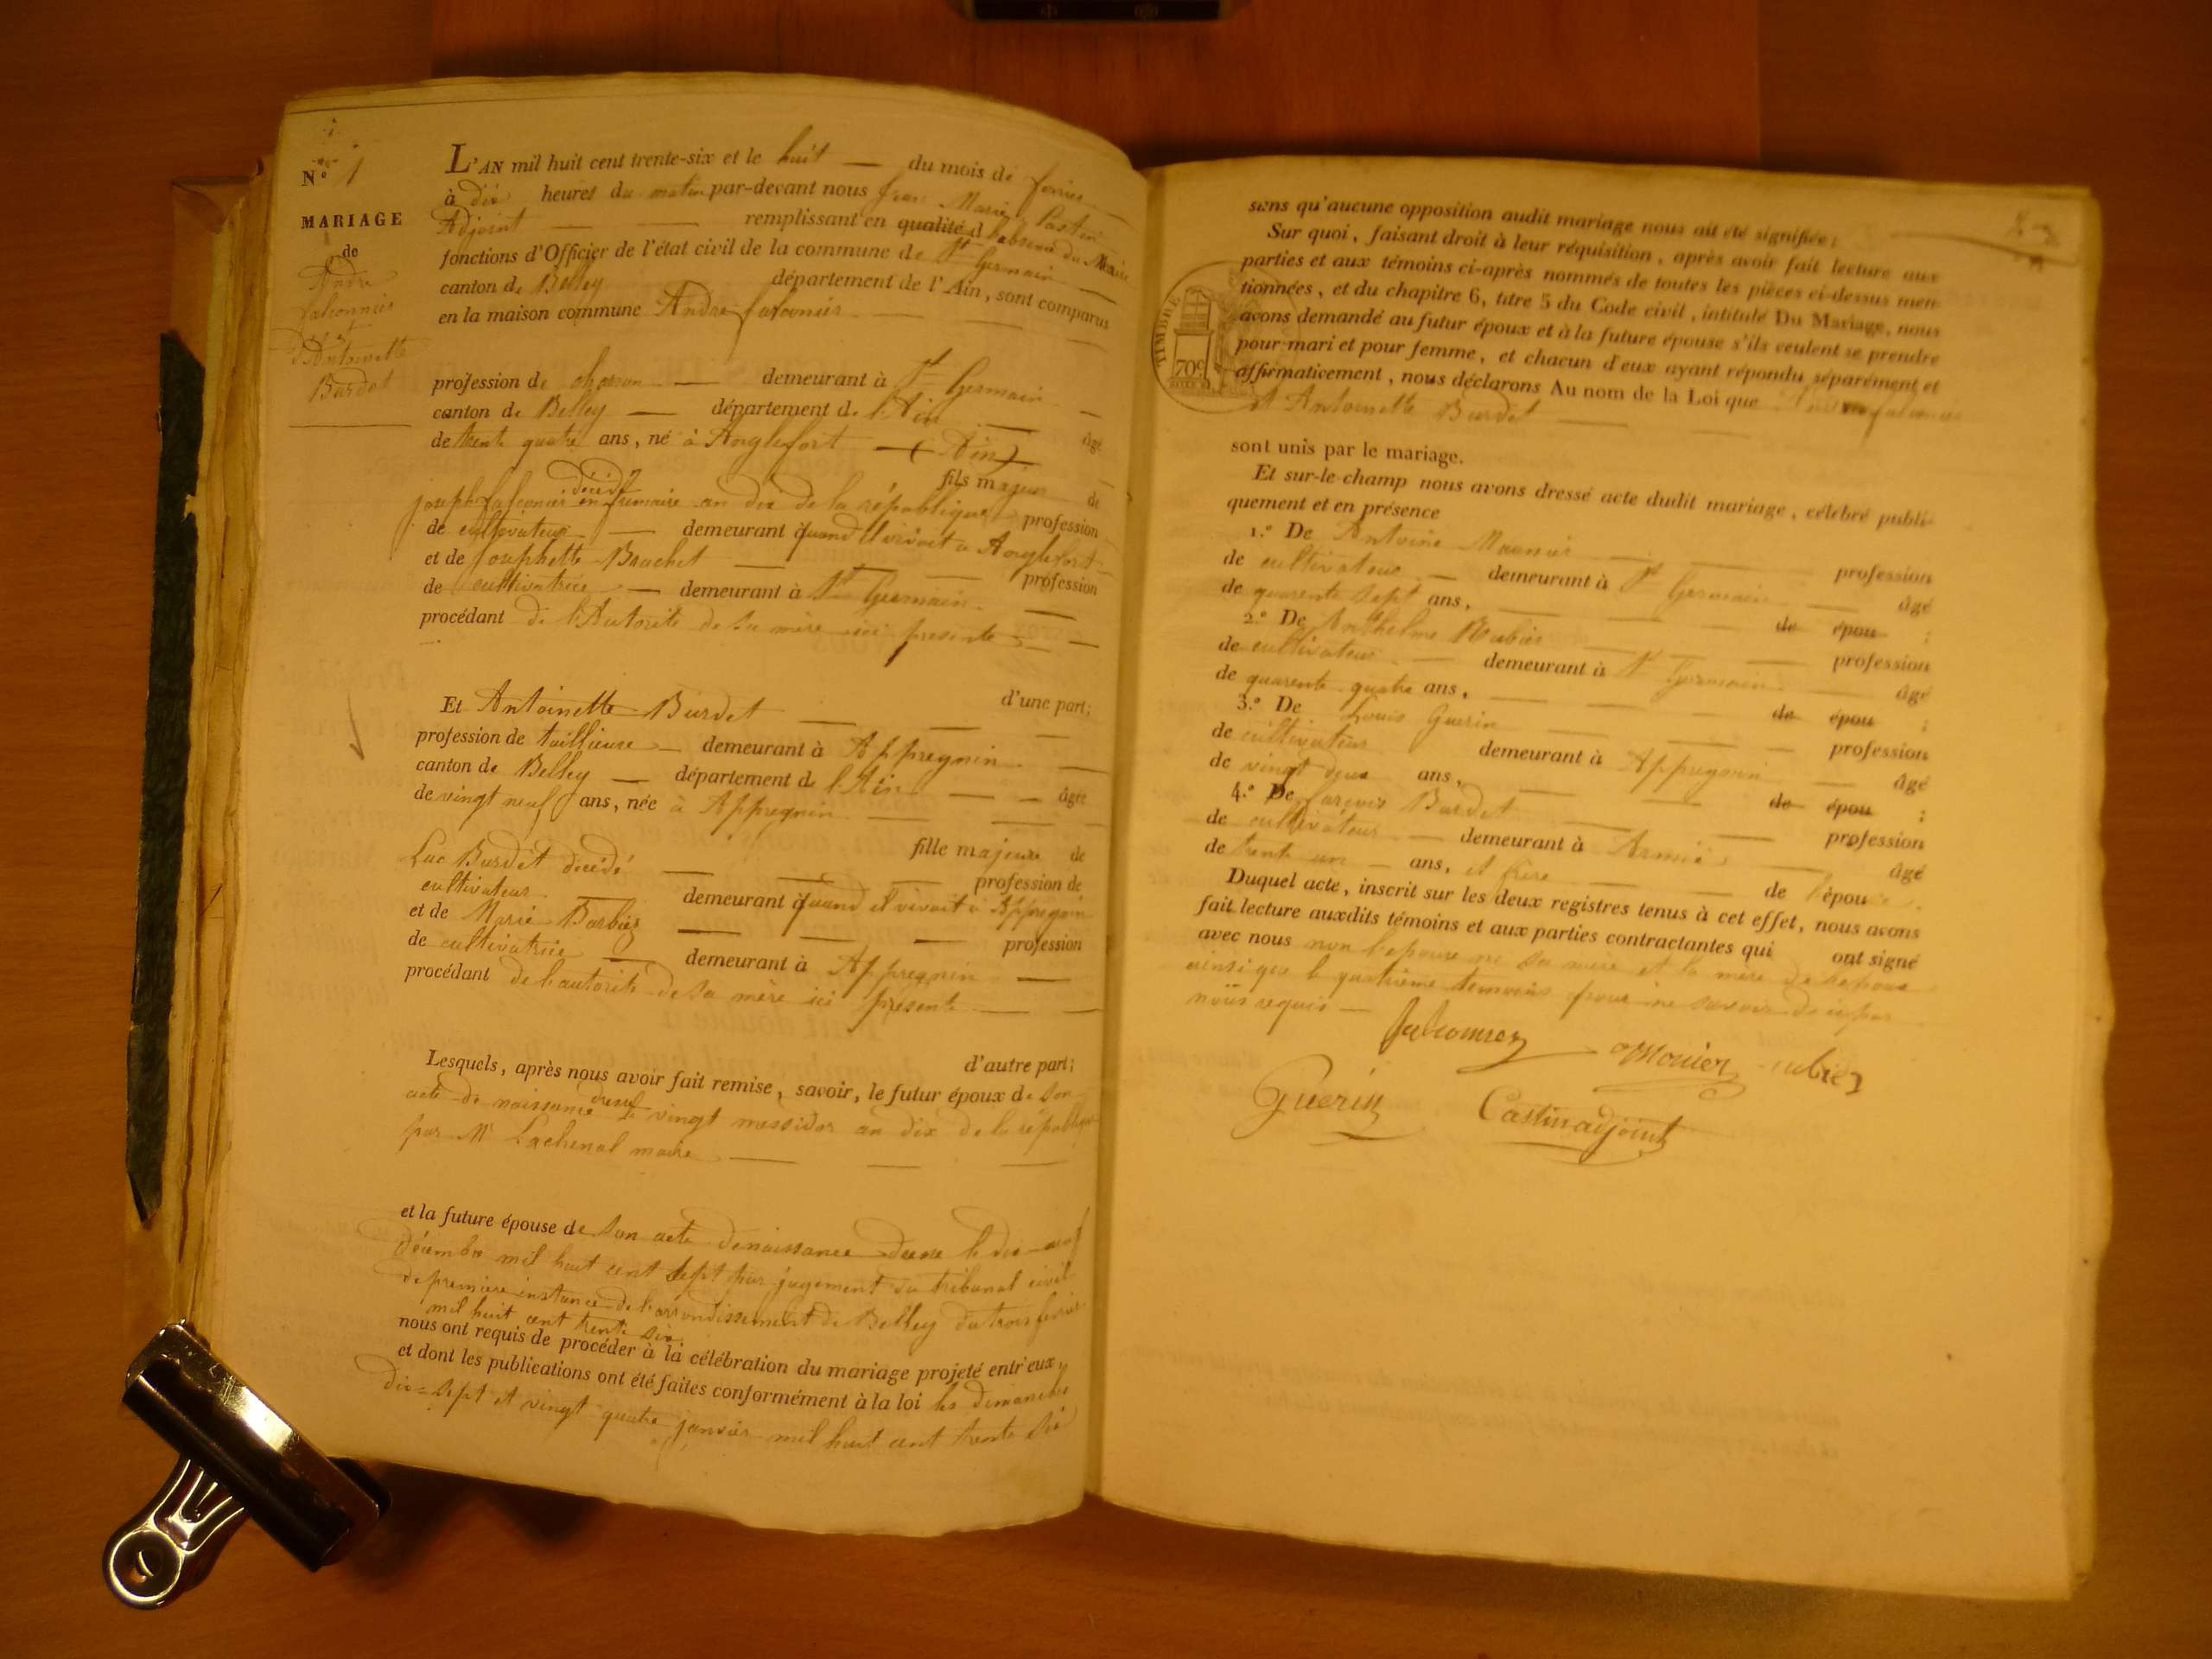 N° 1
MARIAGE
de
André
falconnier
et
d'Antoinette
Burdet
L'AN mil huit cent trente-six et le huit du mois de
à dix heures du matin par-devant nous Marie
Adjoint remplissant en qualité d l'absence du Maire
fonctions d'Officier de l'état civil de la commune de St Germain
canton de Belley département de l'Ain, sont comparus
en la maison commune André
profession de demeurant à St Germain
canton de Belley département de l'Ain âgé
de trente quatre ans, né à Anglefort (Ain)
fils majeur de
décédé
joseph falconier en frimaire an dix de la république profession
de cultivateur demeurant quand il vivoit à Anglefort
et de josephette Brachet profession
de cultivatrice demeurant à St Germain
procédant de l'Autorité de sa mère ici presente
d'une part;
Et Antoinette Burdet
profession de taillieuse demeurant à Appregnin
canton de Belley département de l'Ain âgée
de vingt neuf ans, née à Appregnin
fille majeure de
Luc Burdet décédé profession de
cultivateur demeurant quand il vivoit à Appregnin
et de Marie Barbier profession
de cultivatrice demeurant à Appregnin
procédant de l'autorité de sa mère ici présente
d'autre part;
Lesquels, après nous avoir fait remise, savoir, le futur époux de son
acte de naissance dressé le vingt messidor an dix de la république
par Mr Lachenal maire
et la future épouse de son acte de naissance le dix-neuf
décembre mil huit cent sept par jugement du tribunal civil
de première instance de l'arrondissement de Belley du trois fevrier
mil huit cent trente six.
nous ont requis de procéder à la célébration du mariage projeté entr'eux,
et dont les publications ont été faites conformément à la loi les dimanches
dix-sept et vingt quatre janvier mil huit cent trente six
sans qu'aucune opposition audit mariage nous ait été signifiée;
Sur quoi, faisant droit à leur réquisition, après avoir fait lecture aux
parties et aux témoins ci-après nommés de toutes les pièces ci-dessus men-
tionnées, et du chapitre 6, titre 5 du Code civil, intitulé Du Mariage, nous
avons demandé au futur époux et à la future épouse s'ils veulent se prendre
pour mari et pour femme, et chacun d'eux ayant répondu séparément et
affirmativement, nous déclarons Au nom de la Loi que
et Antoinette Burdet
TIMBRE
70c
sont unis par le mariage.
Et sur-le-champ nous avons dressé acte dudit mariage, célébré publi-
quement et en présence
1.° De Antoine Mounier profession
de cultivateur demeurant à St Germain âgé
de quarente sept ans, de épou ;
2.° De Anthelme Rubier profession
de cultivateur demeurant à St Germain âgé
de quarente quatre ans, de épou ;
3.° De Louis Guerin profession
de cultivateur demeurant à Appregnin âgé
de vingt deux ans, de épou ;
4.° De Burdet profession
de cultivateur demeurant à âgé
de trente un ans, et frère de l'épouse.
Duquel acte, inscrit sur les deux registres tenus à cet effet, nous avons
fait lecture auxdits témoins et aux parties contractantes qui ont signé
avec nous non l'epouse ni sa mère et la mère de l'epoux
ainsi que le quatrième temoins pour ne savoir de ce par
nous requis
Monier
Guerin Castin adjoint